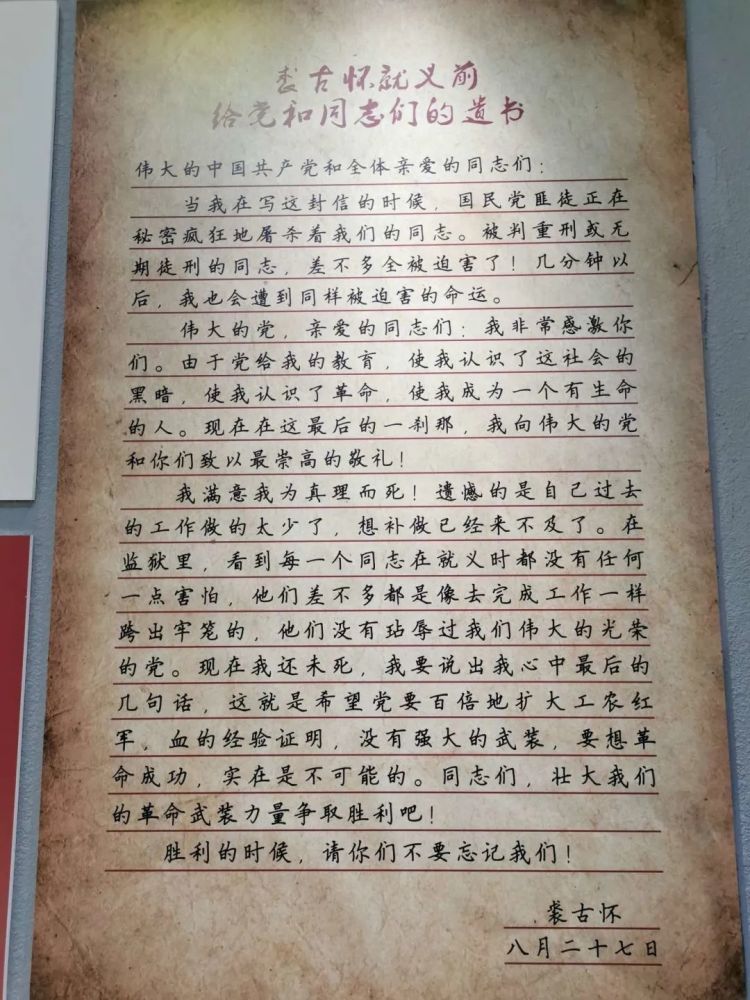 裘古怀就义前
给党和同志们的遗书
伟大的中国共产党和全体亲爱的同志们：
当我在写这封信的时候，国民党匪徒正在
秘密疯狂地屠杀着我们的同志。被判重刑或无
期徒刑的同志，差不多全被迫害了！几分钟以
后，我也会遭到同样被迫害的命运。
伟大的党，亲爱的同志们：我非常感激你
们。由于党给我的教育，使我认识了这社会的
黑暗，使我认识了革命，使我成为一个有生命
的人。现在在这最后的一刹那，我向伟大的党
和你们致以最崇高的敬礼！
我满意我为真理而死！遗憾的是自己过去
的工作做的太少了，想补做已经来不及了。在
监狱里，看到每一个同志在就义时都没有任何
一点害怕，他们差不多都是像去完成工作一样
跨出牢笼的，他们没有玷辱过我们伟大的光荣
的党。现在我还未死，我要说出我心中最后的
几句话，这就是希望党要百倍地扩大工农红
军，血的经验证明，没有强大的武装，要想革
命成功，实在是不可能的。同志们，壮大我们
的革命武装力量争取胜利吧！
胜利的时候，请你们不要忘记我们！
裘古怀
八月二十七日